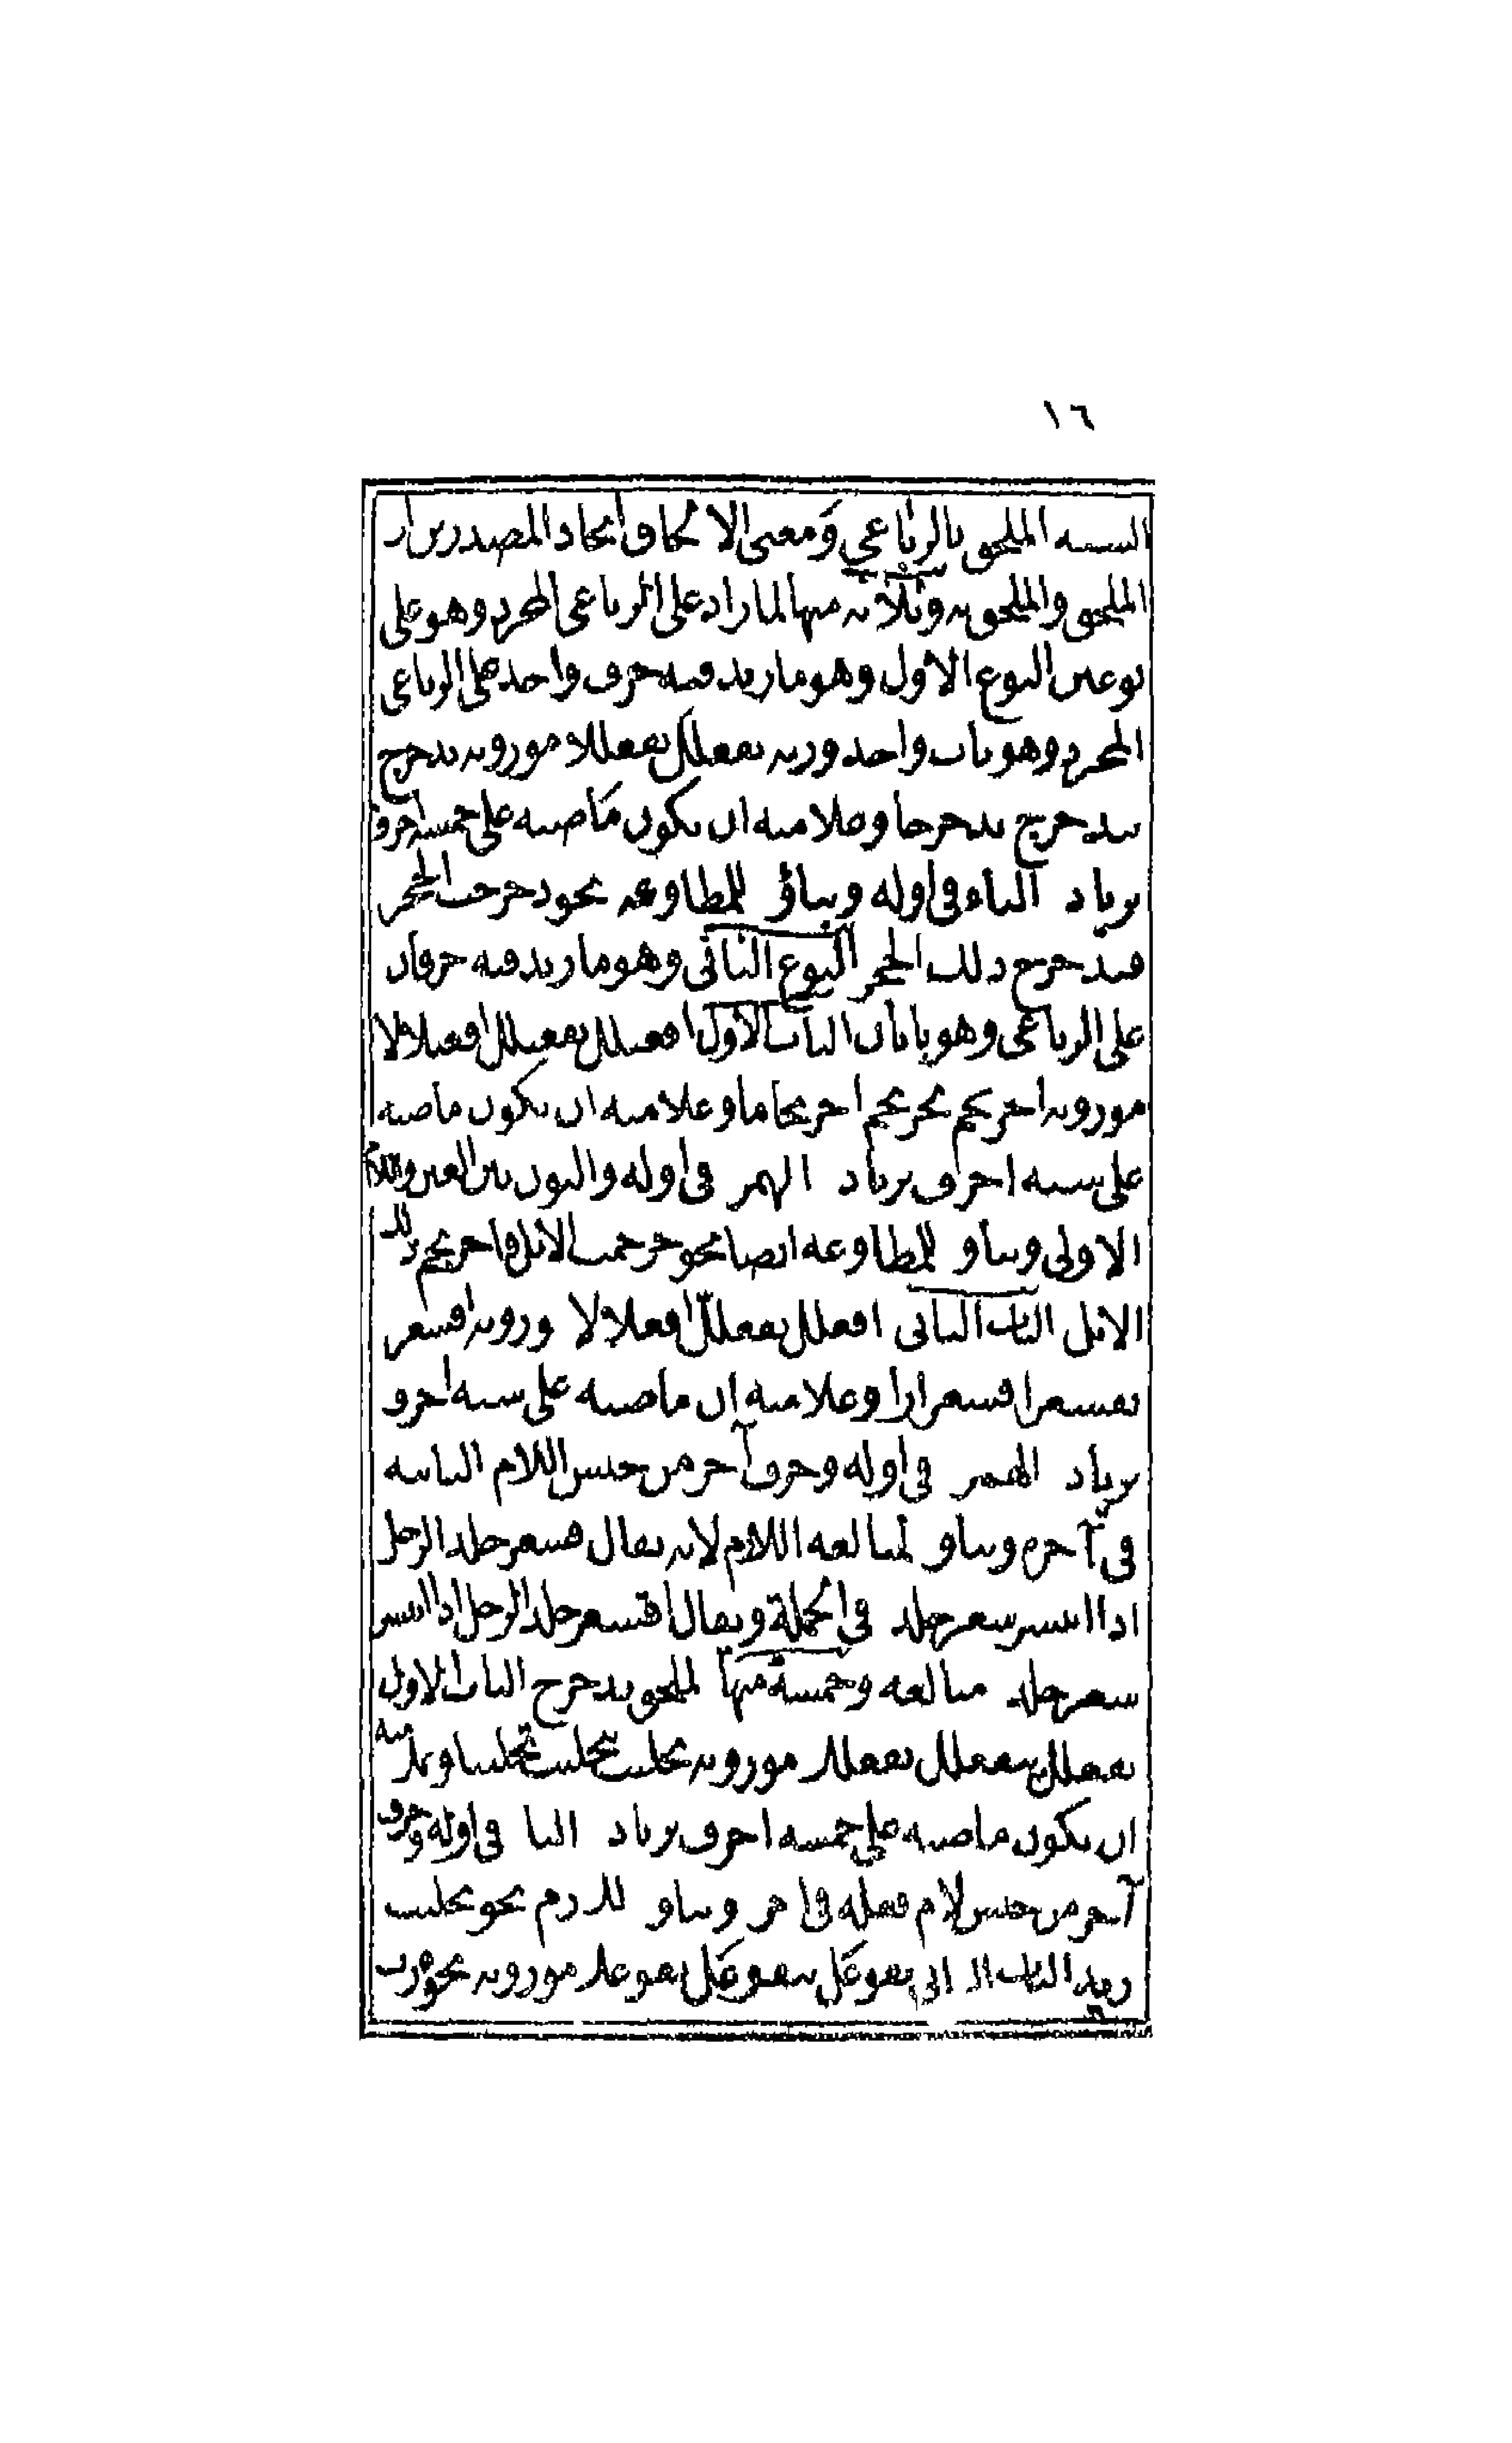 ١٦
الستة الملحق بالرباعي ومعنى الالحاق اتحاد المصدرين اي
الملحق والملحق به وثلاثة منها لما زاد على الرباعي المجرد وهو على
نوعين النوع الاول وهو ما زيد فيه حرف واحد على الرباعي
المجرد وهو باب واحد وزنه تفعلل يتفعلل تفعللا موزونه تدحرج
يتدحرج تدحرجا وعلامته ان يكون ماضيه على خمسة احرف
بزيادة التاء في اوله وبناؤه للمطاوعة نحو دحرجت الحجر
فتدحرج ذلك الحجر النوع الثاني وهو ما زيد فيه حرفان
على الرباعي وهو بابان الباب الاول افعنلل يفعنلل افعنلالا
موزونه احرنجم يحرنجم احرنجاما وعلامته ان يكون ماضيه
على ستة احرف بزيادة الهمزة في اوله والنون بين العين واللام
الاولى وبناؤه للمطاوعة ايضا نحو حرجمت الابل فاحرنجم ذلك
الابل الباب الثاني افعلل يفعلل افعلالا وزونه اقشعر
يقشعر اقشعرارا وعلامته ان ماضيه على ستة احرف
بزيادة الهمزة في اوله وحرف آخر من جنس اللام الثانية
في آخره وبناؤه لمبالغة اللازم لانه يقال قشعر جلد الرجل
اذا انتشر شعر جلده في الجملة ويقال اقشعر جلد الرجل اذا انتشر
شعر جلده مبالغة وخمسة منها لملحق تدحرج الباب الاول
تفعلل يتفعلل تفعللا موزونه تجلبب يتجلبب تجلببا وعلامته
ان يكون ماضيه على خمسة احرف بزيادة التاء في اوله وحرف
آخر من جنس لام فعله في آخره وبناؤه للازم نحو تجلبب
زيد الباب الثاني تفوعل يتفوعل تفوعلا موزونه تجورب